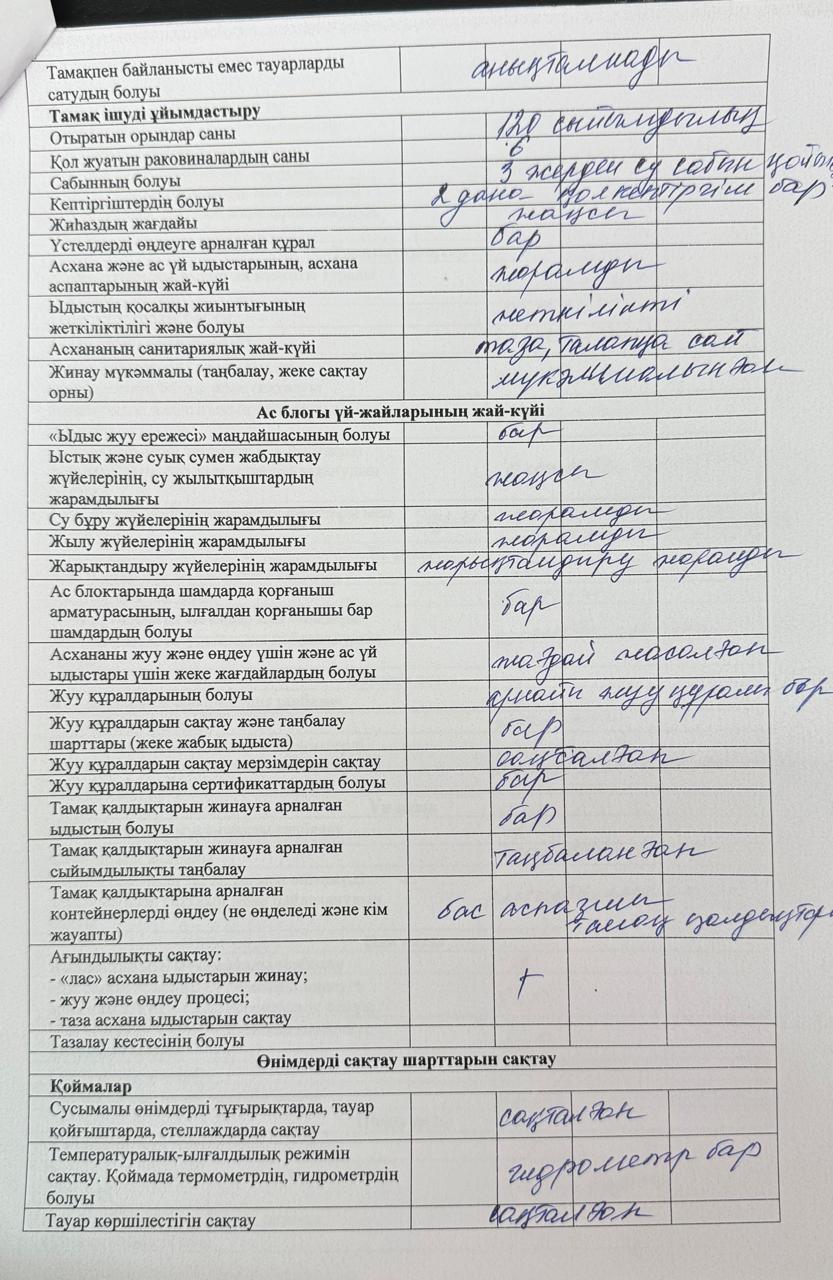 Тамақпен байланысты емес тауарларды анықталмады
сатудың болуы
Тамақ ішуді ұйымдастыру
Отыратын орындар саны 120 сыйымдылық
Қол жуатын раковиналардың саны 6
Сабынның болуы 3 жерден су сабын қойыл
Кептіргіштердің болуы 2 дана қол кептіргіш бар
Жиһаздың жағдайы жақсы
Үстелдерді өңдеуге арналған құрал бар
Асхана және ас үй ыдыстарының, асхана жарамды
аспаптарының жай-күйі
Ыдыстың қосалқы жиынтығының жеткілікті
жеткіліктілігі және болуы
Асхананың санитариялық жай-күйі таза, талапқа сай
Жинау мүкәммалы (таңбалау, жеке сақтау мүкәммалынған
орны)
Ас блогы үй-жайларының жай-күйі
«Ыдыс жуу ережесі» маңдайшасының болуы бар
Ыстық және суық сумен жабдықтау
жүйелерінің, су жылытқыштардың жақсы
жарамдылығы
Су бұру жүйелерінің жарамдылығы жарамды
Жылу жүйелерінің жарамдылығы жарамды
Жарықтандыру жүйелерінің жарамдылығы жарықтандыру жарамды
Ас блоктарында шамдарда қорғаныш
арматурасының, ылғалдан қорғанышы бар бар
шамдардың болуы
Асхананы жуу және өңдеу үшін және ас үй жағдай жасалған
ыдыстары үшін жеке жағдайлардың болуы
Жуу құралдарының болуы арнайы жуу құралы бар
Жуу құралдарын сақтау және таңбалау бар
шарттары (жеке жабық ыдыста)
Жуу құралдарын сақтау мерзімдерін сақтау
Жуу құралдарына сертификаттардың болуы бар
Тамақ қалдықтарын жинауға арналған бар
ыдыстың болуы
Тамақ қалдықтарын жинауға арналған таңбаланған
сыйымдылықты таңбалау
Тамақ қалдықтарына арналған
контейнерлерді өңдеу (не өңделеді және кім бас аспазшы
жауапты) тамақ қалдықтары
Ағындылықты сақтау:
- «лас» асхана ыдыстарын жинау; +
- жуу және өңдеу процесі;
- таза асхана ыдыстарын сақтау
Тазалау кестесінің болуы
Өнімдерді сақтау шарттарын сақтау
Қоймалар
Сусымалы өнімдерді тұғырықтарда, тауар сақталған
қойғыштарда, стеллаждарда сақтау
Температуралық-ылғалдылық режимін
сақтау. Қоймада термометрдің, гидрометрдің гидрометр бар
болуы
Тауар көршілестігін сақтау сақталған